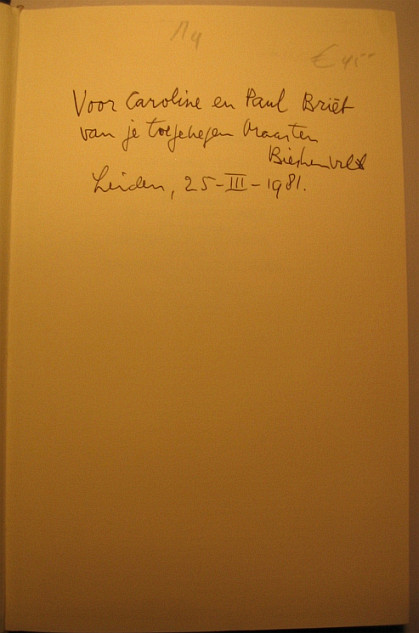 € 45--
Voor Caroline en Paul Briët
van je toegenegen Maarten
Biesheuvel
Leiden, 25-III-1981.